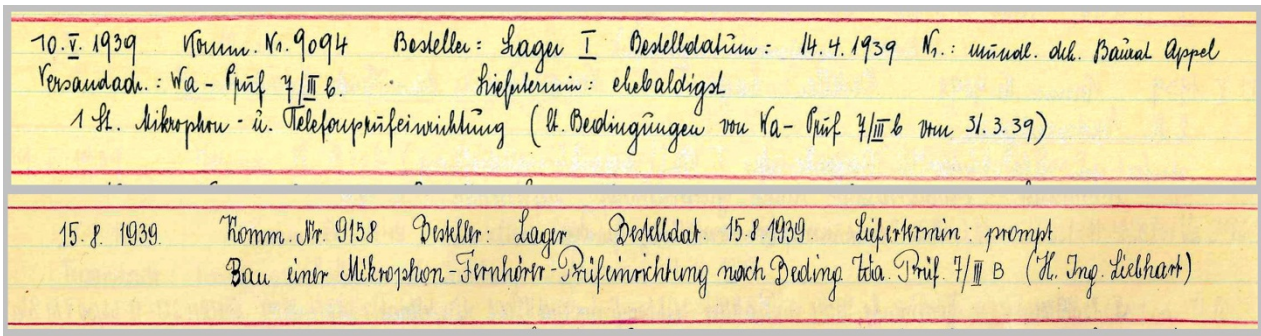 10.V.1939 Komm. Nr. 9094 Besteller: Lager I Bestelldatum: 14.4.1939 Nr.: mündl. dch. Baurat Appel
Versandadr.: Wa - Prüf 7/III b. Liefertermin: ehebaldigst
1 St. Mikrophon- u. Telefonprüfeinrichtung (lt. Bedingungen von Wa - Prüf 7/III b vom 31.3.39)
15.8.1939. Komm. Nr. 9158 Besteller: Lager Bestelldat. 15.8.1939. Liefertermin: prompt
Bau einer Mikrophon-Fernhörer-Prüfeinrichtung nach Beding Wa. Prüf. 7/III B (H. Ing. Liebhart)